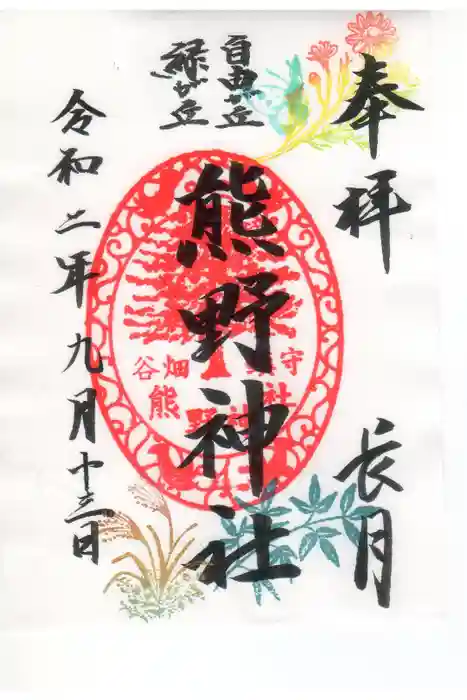 奉拝
長月
自由が丘
緑が丘
熊野神社
谷畑
熊
守
社
令和二年九月十三日